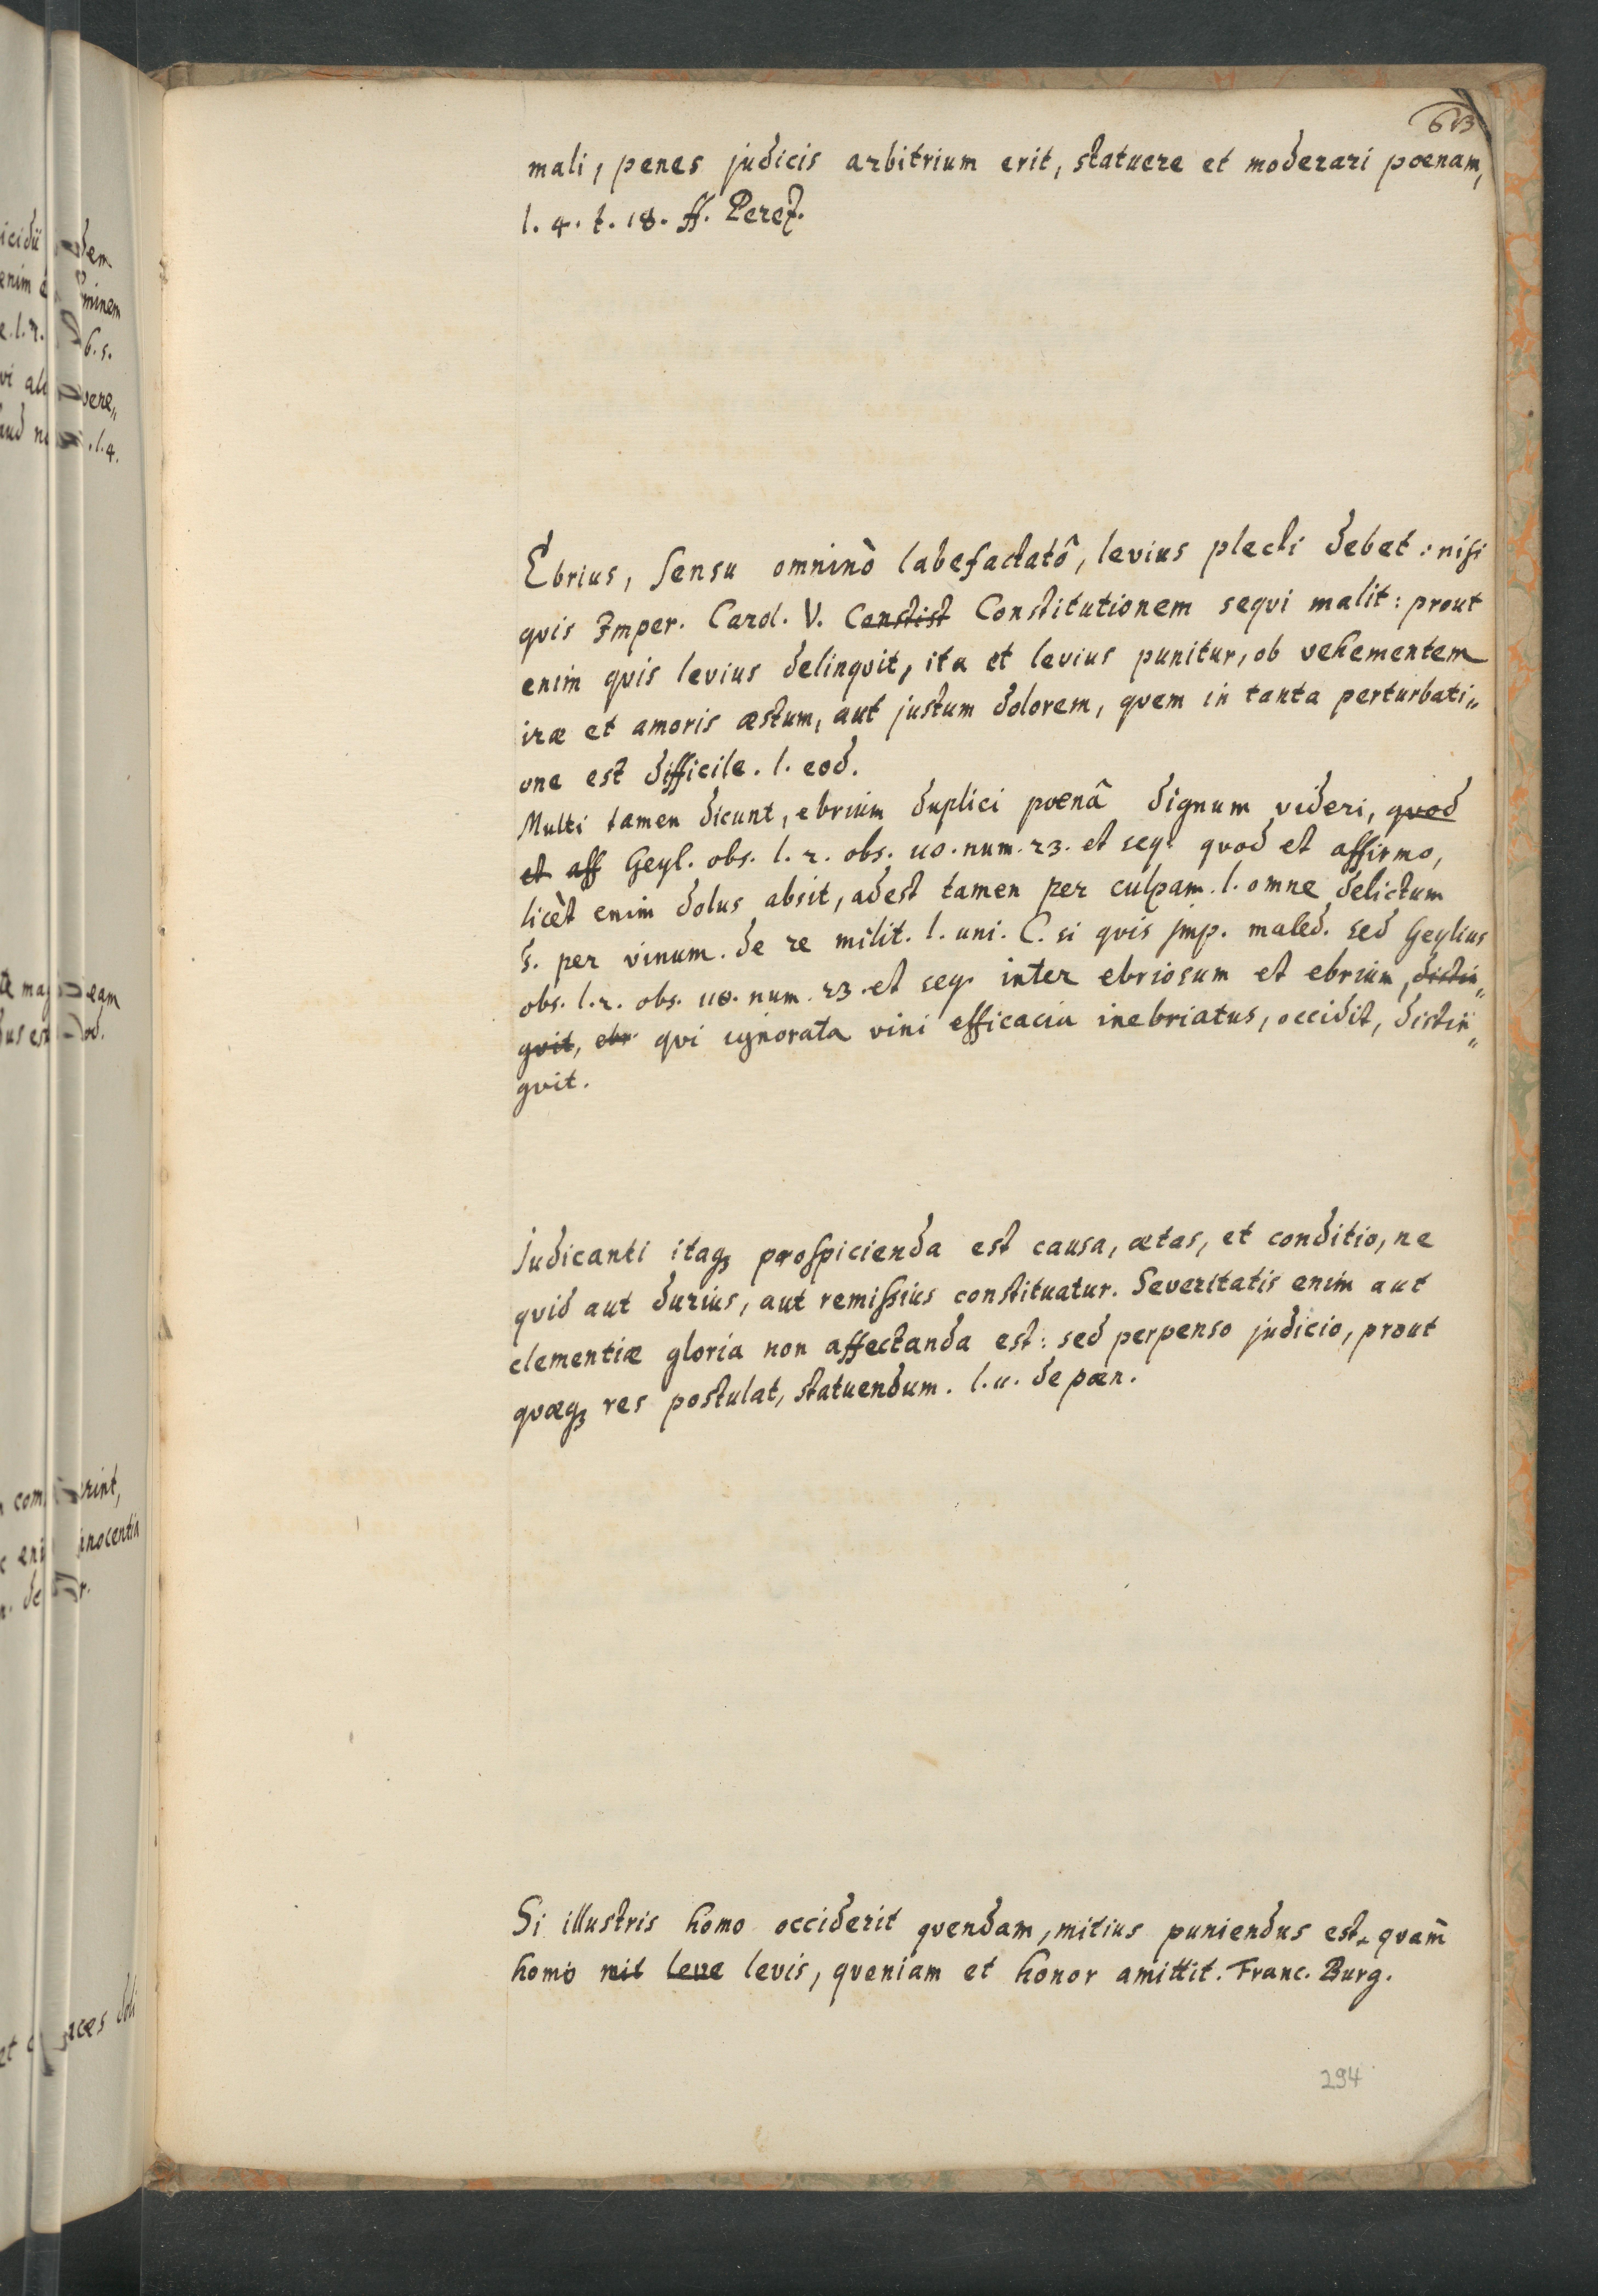 613
mali, penes judicis arbitrium erit, statuere et moderari poenam,
l. 4. t. 18. ff. Perez.
Ebrius, sensu omninò labefactatô, levius plecti debet: nisi
qvis Imper. Carol. V. Constist Constitutionem seqvi malit: prout
enim qvis levius delinqvit, ita et levius punitur, ob vehementem
iræ et amoris æstum, aut justum dolorem, qvem in tanta perturbati„
one est difficile. l. eod.
Multi tamen dicunt, ebrium duplici poenâ dignum videri, qvod
et aff Geyl. obs. l. 2. obs. 110. num. 23. et seq. qvod et affirmo,
licèt enim dolus absit, adest tamen per culpam. l. omne delictum
§. per vinum. de re milit. l. uni. C. si qvis imp. maled. sed Geylius
obs. l. 2. obs. 110. num. 23. et seq. inter ebriosum et ebrium, distin„
gvit, ebr qvi ignorata vini efficacia inebriatus, occidit, distin„
gvit.
Judicanti itaq; prospicienda est causa, ætas, et conditio, ne
qvid aut durius, aut remissius constituatur. Severitatis enim aut
clementiæ gloria non affectanda est: sed perpenso judicio, prout
qvæq; res postulat, statuendum. l. 11. de pœn.
Si illustris homo occiderit qvendam, mitius puniendus est, qvam
homo mit leve levis, qveniam et honor amittit. Franc. Burg.
294